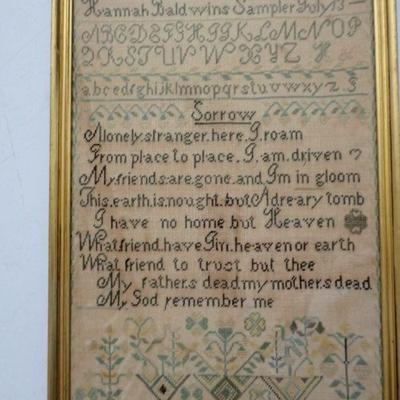 Hannah Baldwins Sampler July 13
ABCDEFGHIJKLMNOP
QRSTUVWXYZ
abcdefghijklmnopqrstuvwxyz
Sorrow
A lonely stranger here I roam
From place to place I am driven
My friends are gone and I'm in gloom
This earth is nought but A dreary tomb
I have no home but Heaven
What friend have I in heaven or earth
What friend to trust but thee
My fathers dead my mothers dead
My God remember me